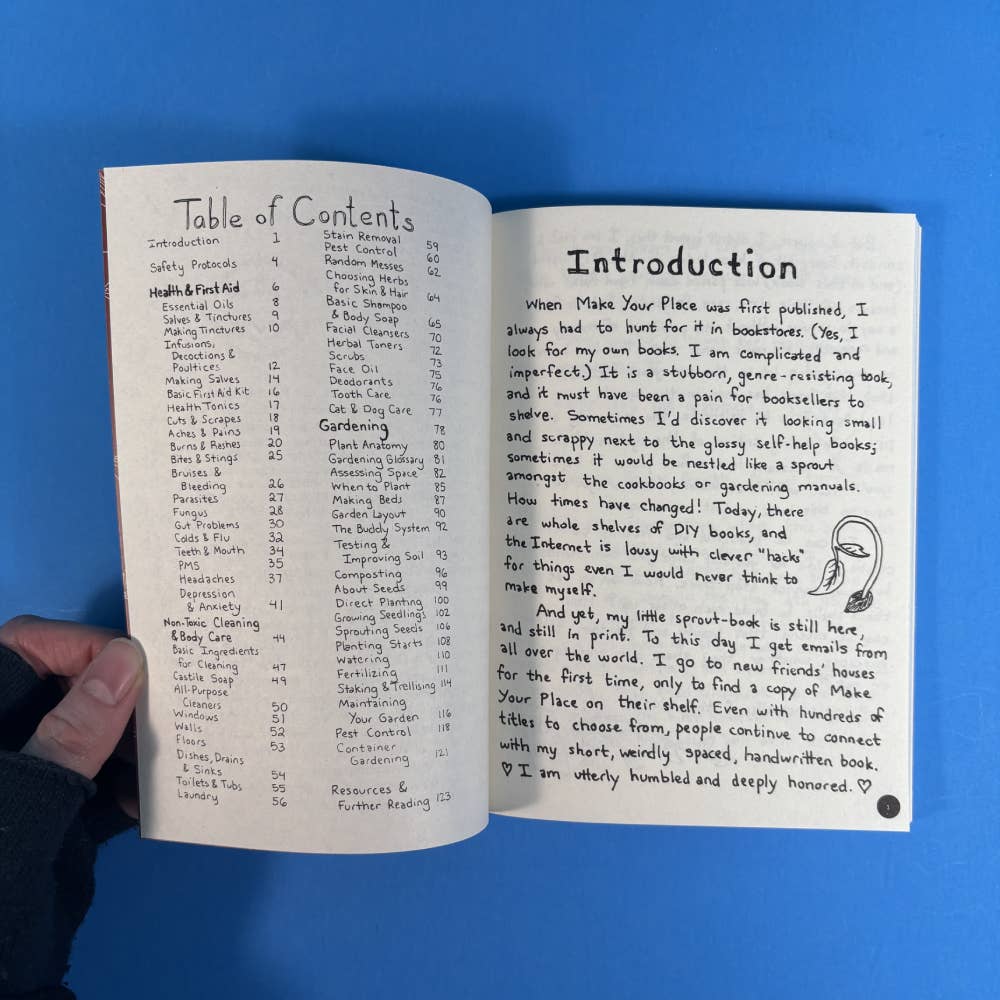 Table of Contents
Introduction 1
Safety Protocols 4
Health & First Aid 6
Essential Oils 8
Salves & Tinctures 9
Making Tinctures 10
Infusions,
Decoctions &
Poultices 12
Making Salves 14
Basic First Aid Kit 16
Health Tonics 17
Cuts & Scrapes 18
Aches & Pains 19
Burns & Rashes 20
Bites & Stings 25
Bruises &
Bleeding 26
Parasites 27
Fungus 28
Gut Problems 30
Colds & Flu 32
Teeth & Mouth 34
PMS 35
Headaches 37
Depression
& Anxiety 41
Non-Toxic Cleaning
& Body Care 44
Basic Ingredients
for Cleaning 47
Castile Soap 49
All-Purpose
Cleaners 50
Windows 51
Walls 52
Floors 53
Dishes, Drains
& Sinks 54
Toilets & Tubs 55
Laundry 56
Stain Removal 59
Pest Control 60
Random Messes 62
Choosing Herbs
for Skin & Hair 64
Basic Shampoo
& Body Soap 65
Facial Cleansers 70
Herbal Toners 72
Scrubs 73
Face Oil 75
Deodorants 76
Tooth Care 76
Cat & Dog Care 77
Gardening 78
Plant Anatomy 80
Gardening Glossary 81
Assessing Space 82
When to Plant 85
Making Beds 87
Garden Layout 90
The Buddy System 92
Testing &
Improving Soil 93
Composting 96
About Seeds 99
Direct Planting 100
Growing Seedlings 102
Sprouting Seeds 106
Planting Starts 108
Watering 110
Fertilizing 111
Staking & Trellising 114
Maintaining
Your Garden 116
Pest Control 118
Container
Gardening 121
Resources &
Further Reading 123
Introduction
When Make Your Place was first published, I
always had to hunt for it in bookstores. (Yes, I
look for my own books. I am complicated and
imperfect.) It is a stubborn, genre-resisting book,
and it must have been a pain for booksellers to
shelve. Sometimes I'd discover it looking small
and scrappy next to the glossy self-help books;
sometimes it would be nestled like a sprout
amongst the cookbooks or gardening manuals.
How times have changed! Today, there
are whole shelves of DIY books, and
the Internet is lousy with clever "hacks"
for things even I would never think to
make myself.
And yet, my little sprout-book is still here,
and still in print. To this day I get emails from
all over the world. I go to new friends' houses
for the first time, only to find a copy of Make
Your Place on their shelf. Even with hundreds of
titles to choose from, people continue to connect
with my short, weirdly spaced, handwritten book.
♡ I am utterly humbled and deeply honored. ♡
1